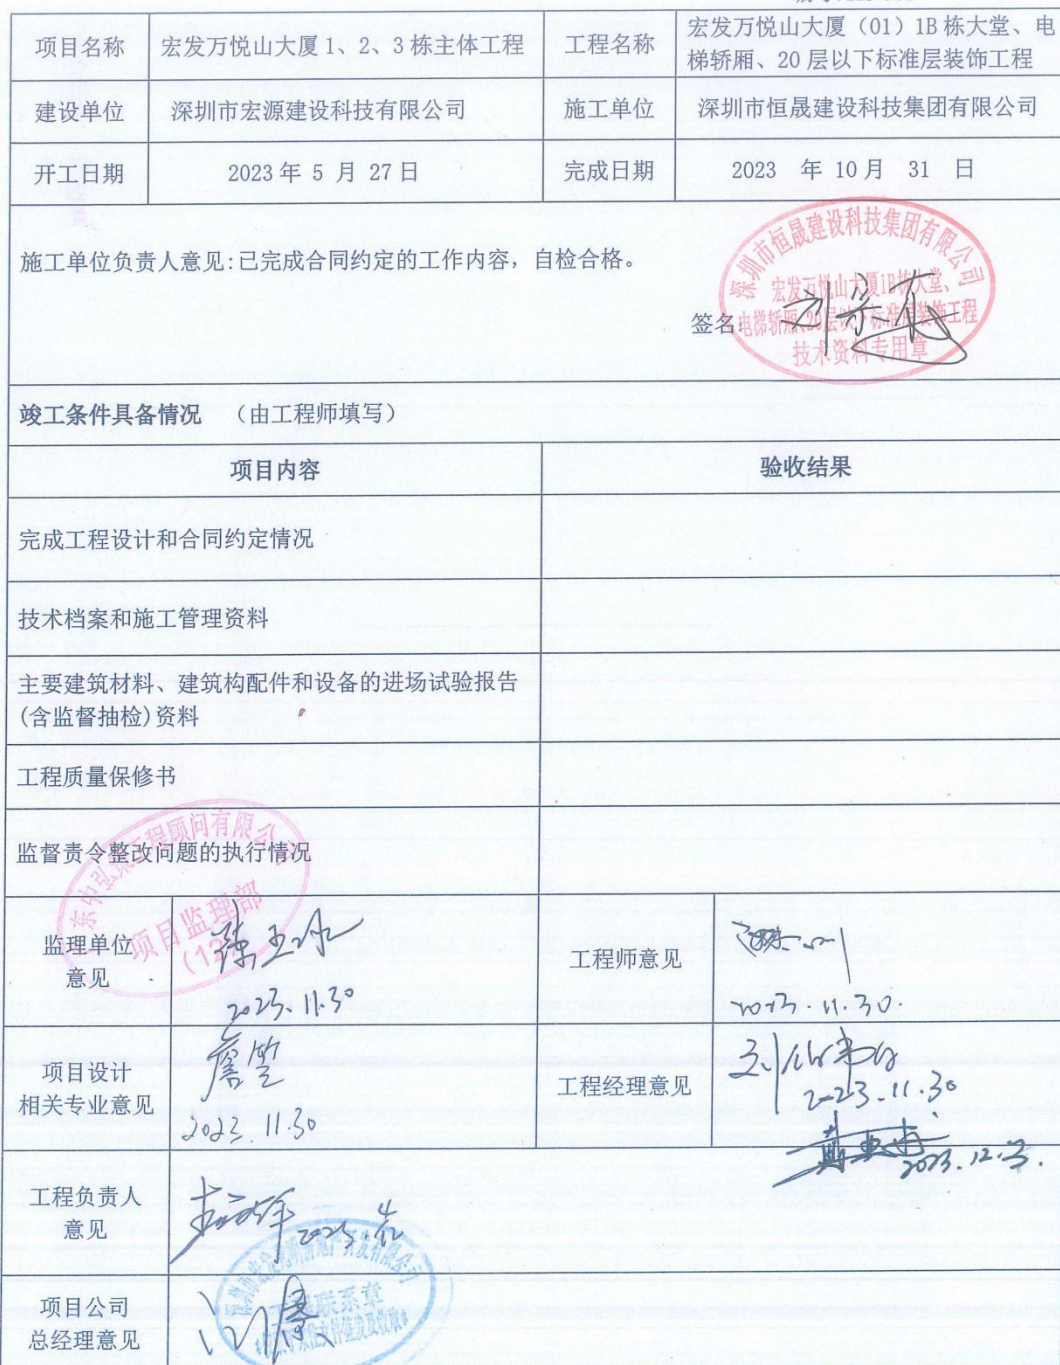 项目名称 宏发万悦山大厦1、2、3栋主体工程 工程名称 宏发万悦山大厦（01）1B栋大堂、电
梯轿厢、20层以下标准层装饰工程
建设单位 深圳市宏源建设科技有限公司 施工单位 深圳市恒晟建设科技集团有限公司
开工日期 2023年 5 月 27日 完成日期 2023 年 10月 31 日
施工单位负责人意见:已完成合同约定的工作内容，自检合格。
深圳市恒晟建设科技集团有限公司
宏发万悦山大厦1B栋大堂、
签名: 电梯轿厢、20层以下标准层装饰工程
技术资料专用章
竣工条件具备情况 （由工程师填写）
项目内容 验收结果
完成工程设计和合同约定情况
技术档案和施工管理资料
主要建筑材料、建筑构配件和设备的进场试验报告
(含监督抽检)资料
工程质量保修书
工程顾问有限公司
监督责令整改问题的执行情况
项目监理部
监理单位
意见
2023.11.30
工程师意见
2023.11.30.
项目设计
相关专业意见
2023.11.30
工程经理意见
2023.11.30
2023.12.3.
工程负责人
意见
项目公司
总经理意见
联系章